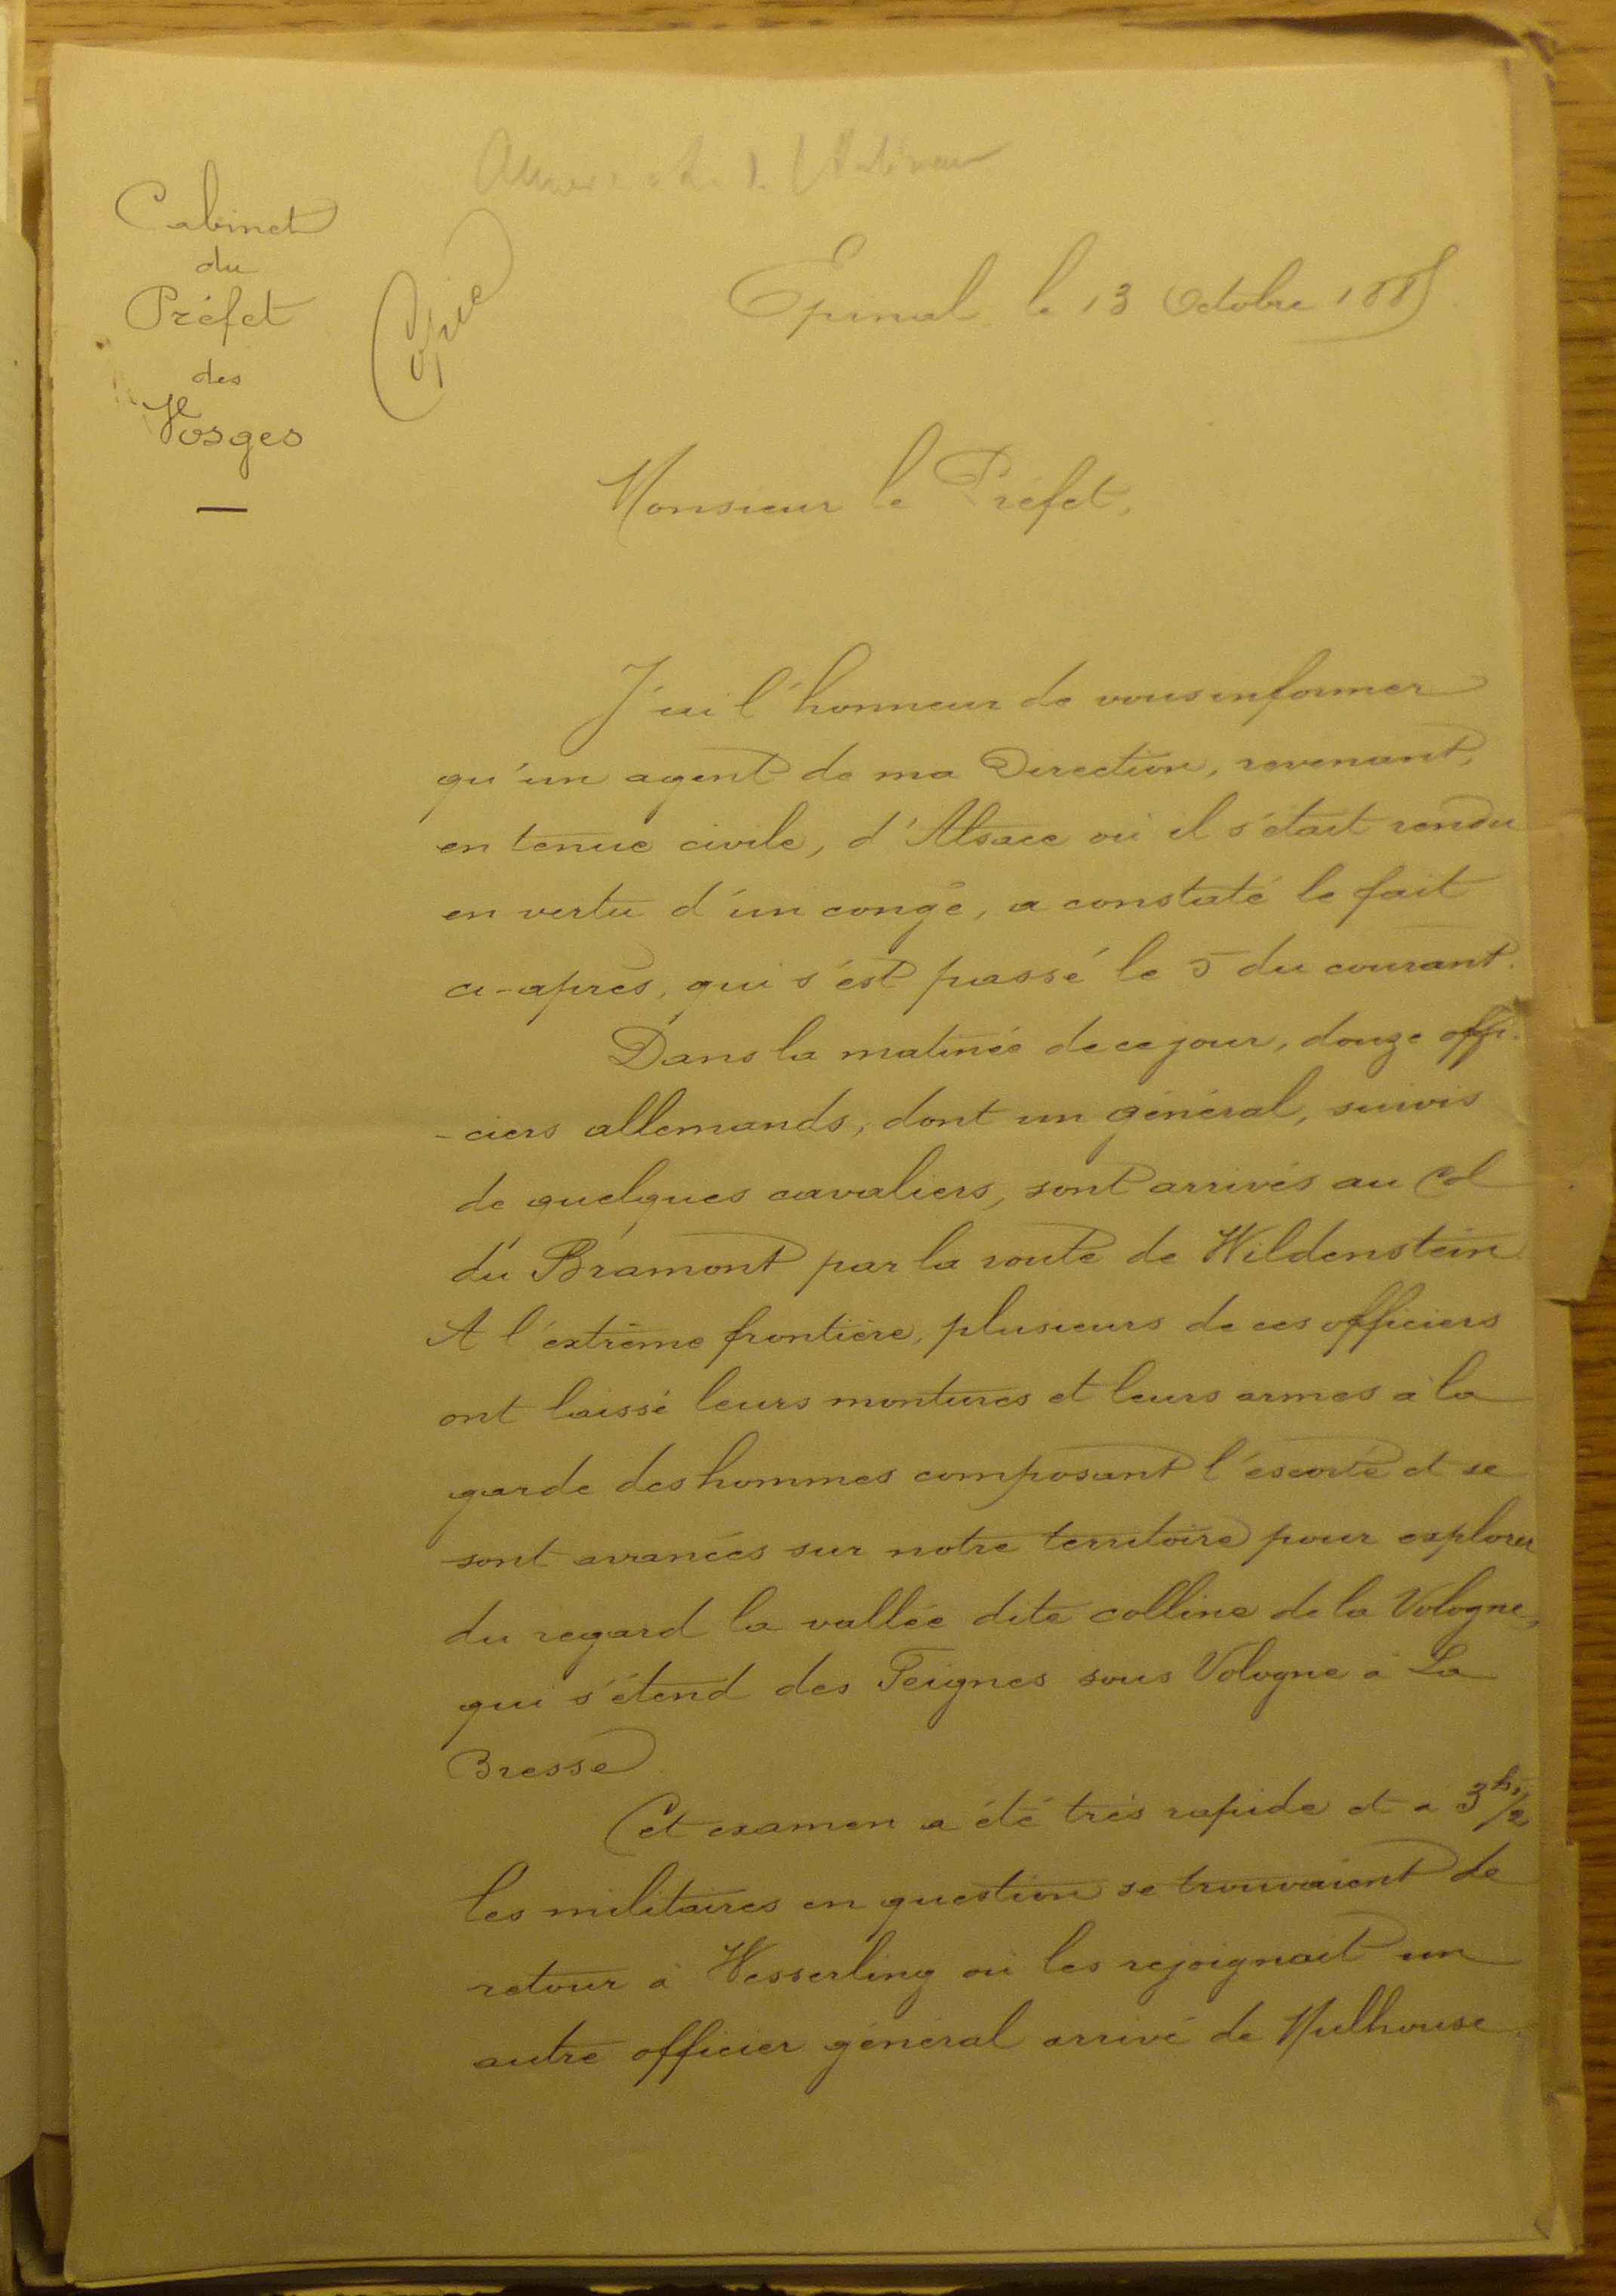 Cabinet
du
Préfet
des
Vosges
Copie
Epinal, le 13 Octobre 188
Monsieur le Préfet,
J'ai l'honneur de vous informer
qu'un agent de ma Direction, revenant,
en tenue civile, d'Alsace où il s'était rendu
en vertu d'un congé, a constaté le fait
ci-après, qui s'est passé le 5 du courant.
Dans la matinée de ce jour, douze offi-
-ciers allemands, dont un général, suivis
de quelques cavaliers, sont arrivés au Col
du Bramont par la route de Wildenstein.
A l'extrême frontière, plusieurs de ces officiers
ont laissé leurs montures et leurs armes à la
garde des hommes composant l'escorte et se
sont avancés sur notre territoire pour explorer
du regard la vallée dite colline de la Vologne,
qui s'étend des Feignes sous Vologne à La
Bresse.
Cet examen a été très rapide et à 3h 1/2
les militaires en question se trouvaient de
retour à Wesserling où les rejoignait un
autre officier général arrivé de Mulhouse.